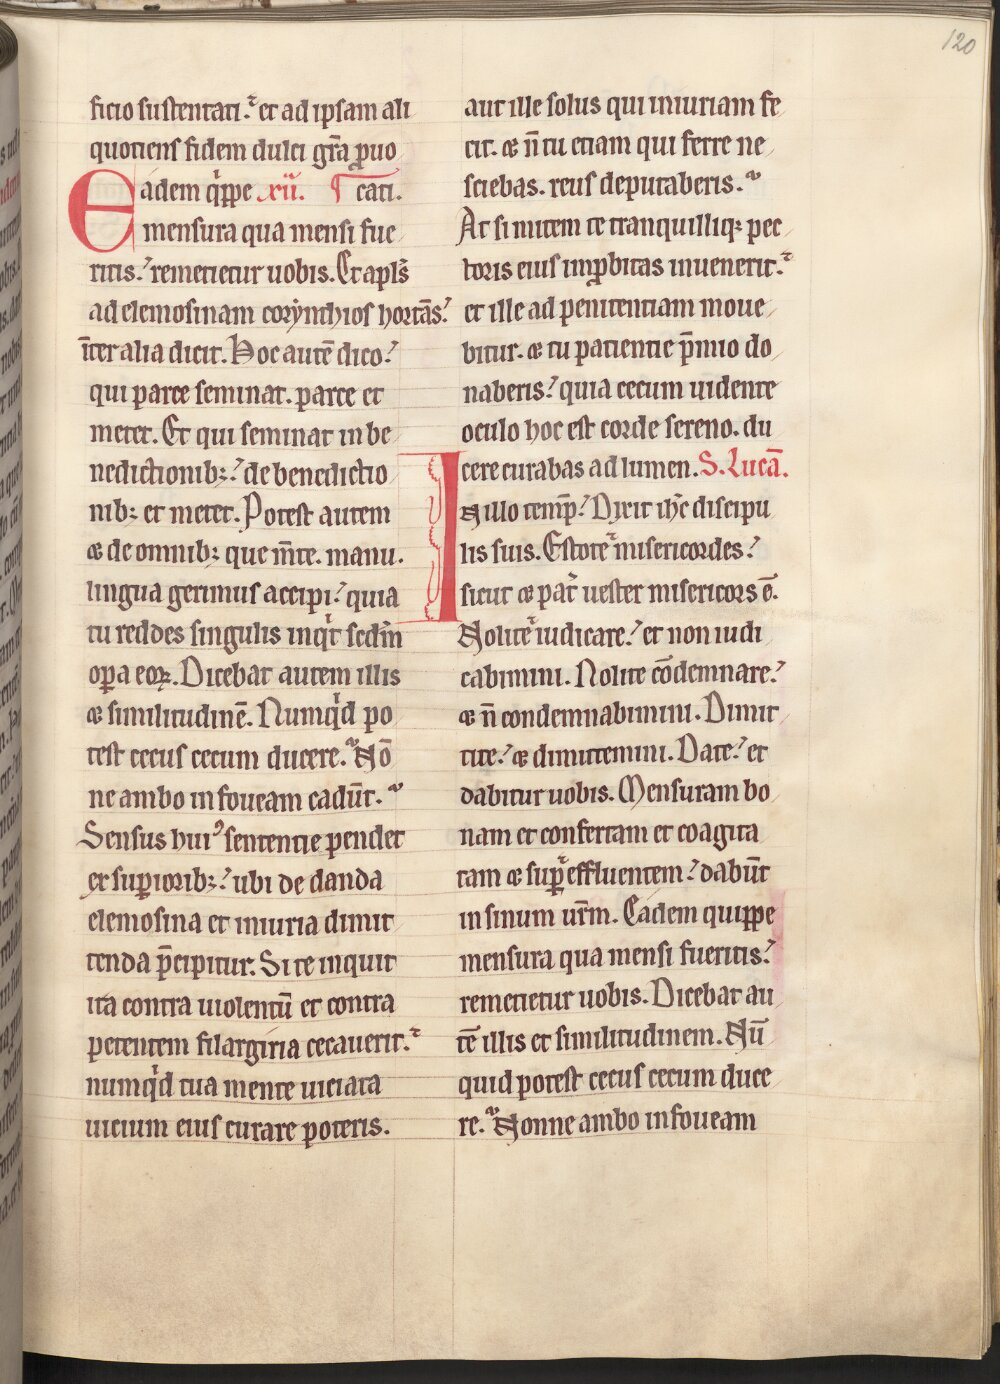 120
ficio sustentati. et ad ipsam ali
quotiens fidem dulci gr̄a ꝓuo
Eadem q̇ppe .xii. ¶ cati.
mensura qua mensi fue
ritis. remetietur uobis. Et apl's
ad elemosinam corynthios hortās.
īter alia dicit. Hoc autē dico.
qui parce seminat. parce et
metet. Et qui seminat in be
nedictionibꝫ. de benedictio
nibꝫ et metet. Potest autem
⁊ de omnibꝫ que m̄te. manu.
lingua gerimus accipi. quia
tu reddes singulis inqͥt sc̄dm
oꝑa eoꝝ. Dicebat autem illis
⁊ similitudinē. Numqͥd po
test cecus cecum ducere. Nō
ne ambo in foueam cadūt.
Sensus huiꝰ sententie pendet
ex suꝑioribꝫ. ubi de danda
elemosina et iniuria dimit
tenda p̄cipitur. Si te inquit
ita contra uiolentū et contra
petentem filargiria cecauerit.
numqͥd tua mente uiciata
uicium eius curare poteris.
aut ille solus qui iniuriam fe
cit. ⁊ n̄ tu etiam qui ferre ne
sciebas. reus deputaberis.
At si mitem te tranquilliqꝫ pec
toris eius imꝓbitas inuenerit.
et ille ad penitentiam moue
bitur. ⁊ tu patientie p̄mio do
naberis. quia cecum uidente
oculo hoc est corde sereno. du
cere curabas ad lumen. S. Lucā.
In illo temp̄. Dixit ih̄c discipu
lis suis. Estote misericordes.
sicut ⁊ pat̄ uester misericors ē.
Nolite iudicare. et non iudi
cabimini. Nolite cōdemnare.
⁊ n̄ condemnabimini. Dimit
tite. ⁊ dimittemini. Date. et
dabitur uobis. Mensuram bo
nam et confertam et coagita
tam ⁊ suꝑeffluentem. dabūt
in sinum ur̄m. Eadem quippe
mensura qua mensi fueritis.
remetietur uobis. Dicebat au
tē illis et similitudinem. Nū
quid potest cecus cecum duce
re. Nonne ambo in foueam